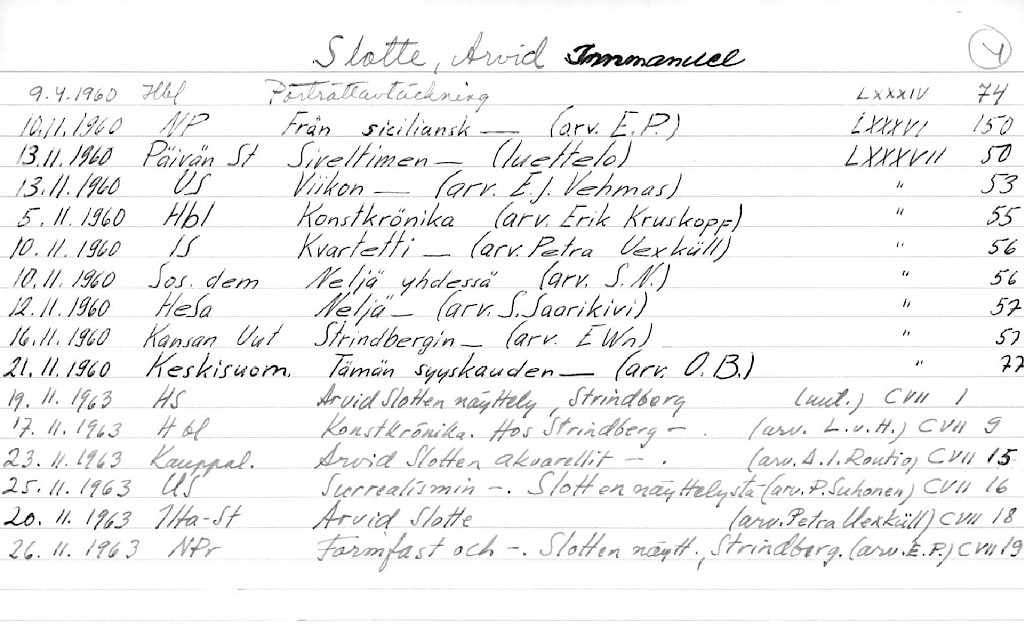 Slotte, Arvid Immanuel 4
9.4.1960 Hbl Porträttavtäckning LXXXIV 74
10.11.1960 NP Från siciliansk — (arv. E.P.) LXXXVI 150
13.11.1960 Päivän St Siveltimen — (luettelo) LXXXVII 50
13.11.1960 US Viikon — (arv. E.J. Vehmas) " 53
5.11.1960 Hbl Konstkrönika (arv. Erik Kruskopf) " 55
10.11.1960 IS Kvartetti — (arv. Petra Uexküll) " 56
10.11.1960 Sos. dem Neljä yhdessä (arv. S.N.) " 56
12.11.1960 HeSa Neljä — (arv. S. Saarikivi) " 57
16.11.1960 Kansan Uut Strindbergin — (arv. EWn) " 57
21.11.1960 Keskisuom. Tämän syyskauden — (arv. O.B.) " 77
19.11.1963 HS Arvid Slotten näyttely, Strindberg (uut.) CVII 1
17.11.1963 Hbl Konstkrönika. Hos Strindberg — . (arv. L.v.H.) CVII 9
23.11.1963 Kauppal. Arvid Slotten akvarellit — . (arv. A.I. Routio) CVII 15
25.11.1963 US Surrealismin —. Slotten näyttelystä (arv. P. Suhonen) CVII 16
20.11.1963 Ilta-St Arvid Slotte (arv. Petra Uexküll) CVII 18
26.11.1963 NPr Formfast och —. Slotten näytt., Strindberg. (arv. E.P.) CVII 19